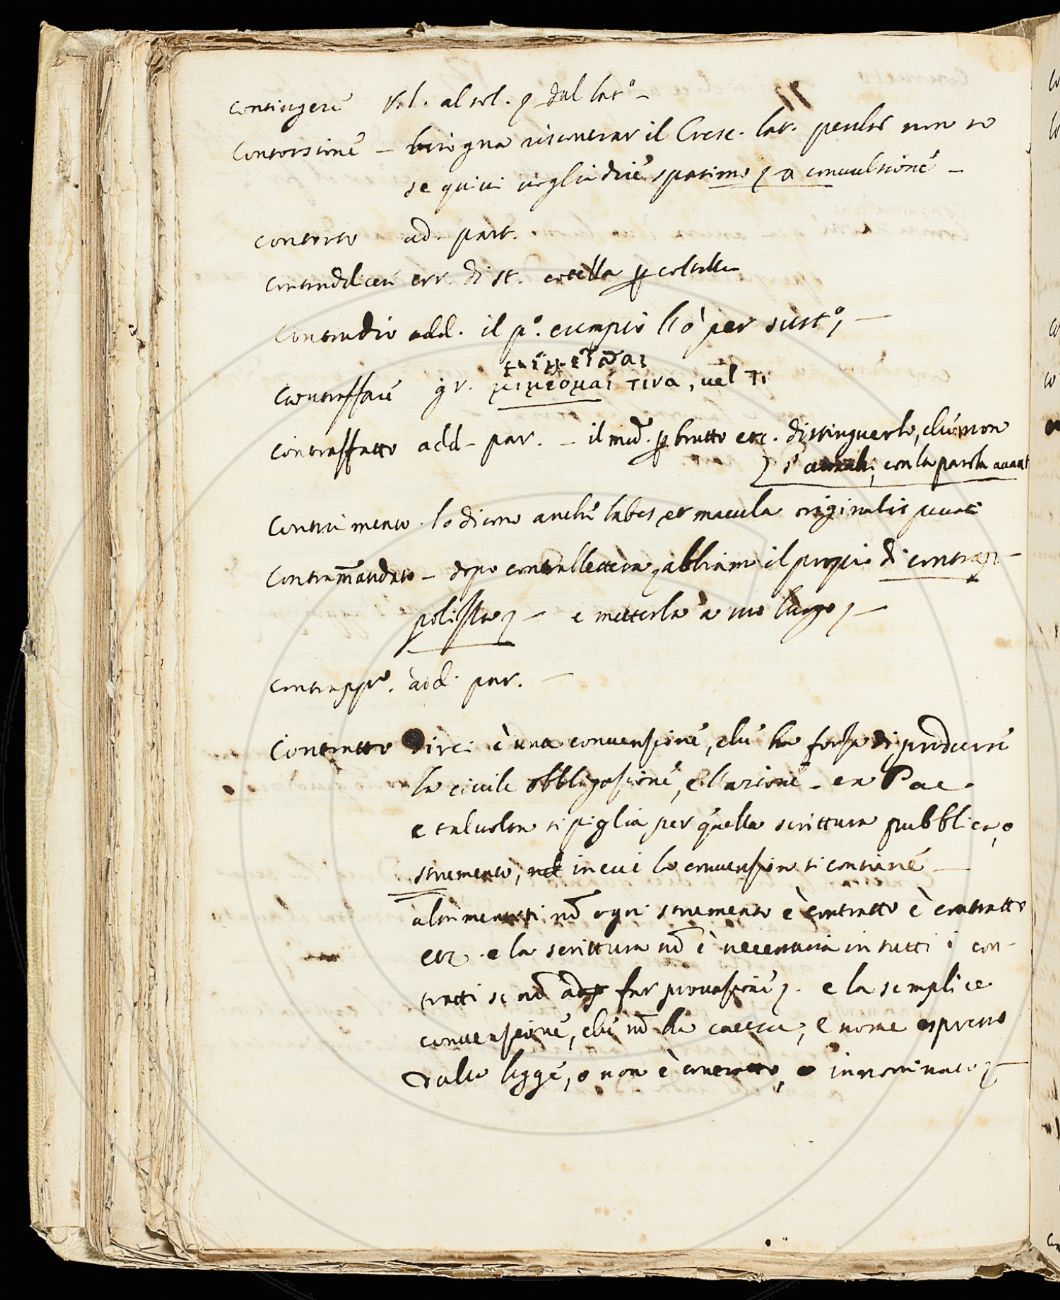 contingere V. l. al sol. p dal lat.o
contorsione – bisogna riscontrar il Cresc. lat. perche non so
se quivi voglia dire spasimo, o convulsione –
contorto ad. part.
err. di st. cotella p coltella
add. il p.o esempio è per sust.o, –
contraffare gr. τινα, vel τι
contraffatto add. par. – il med. p brutto etc. distinguerlo, che non
con la parola avanti
lo dicono anche labes, et macula originalis peccati
contrammandato – dopo abbiamo il proprio di
e metterla a suo luogo, –
add. par. –
contratto Dirci è una convensione, che ha forsa di produrre
la civile obbligasione, e l'asione –
e talvolta si piglia per quella scrittura pubblica, o
strumento, in cui la convension si contiene –
altrimenti nō ogni strumento è contratto è contratto
etc. e la scrittura nō è necessaria in tutti i con-
tratti se nō ad far provasione, e la semplice
convensione, che nō ha causa, e nome espresso
dalla legge, o non è contratto, o innominato, –